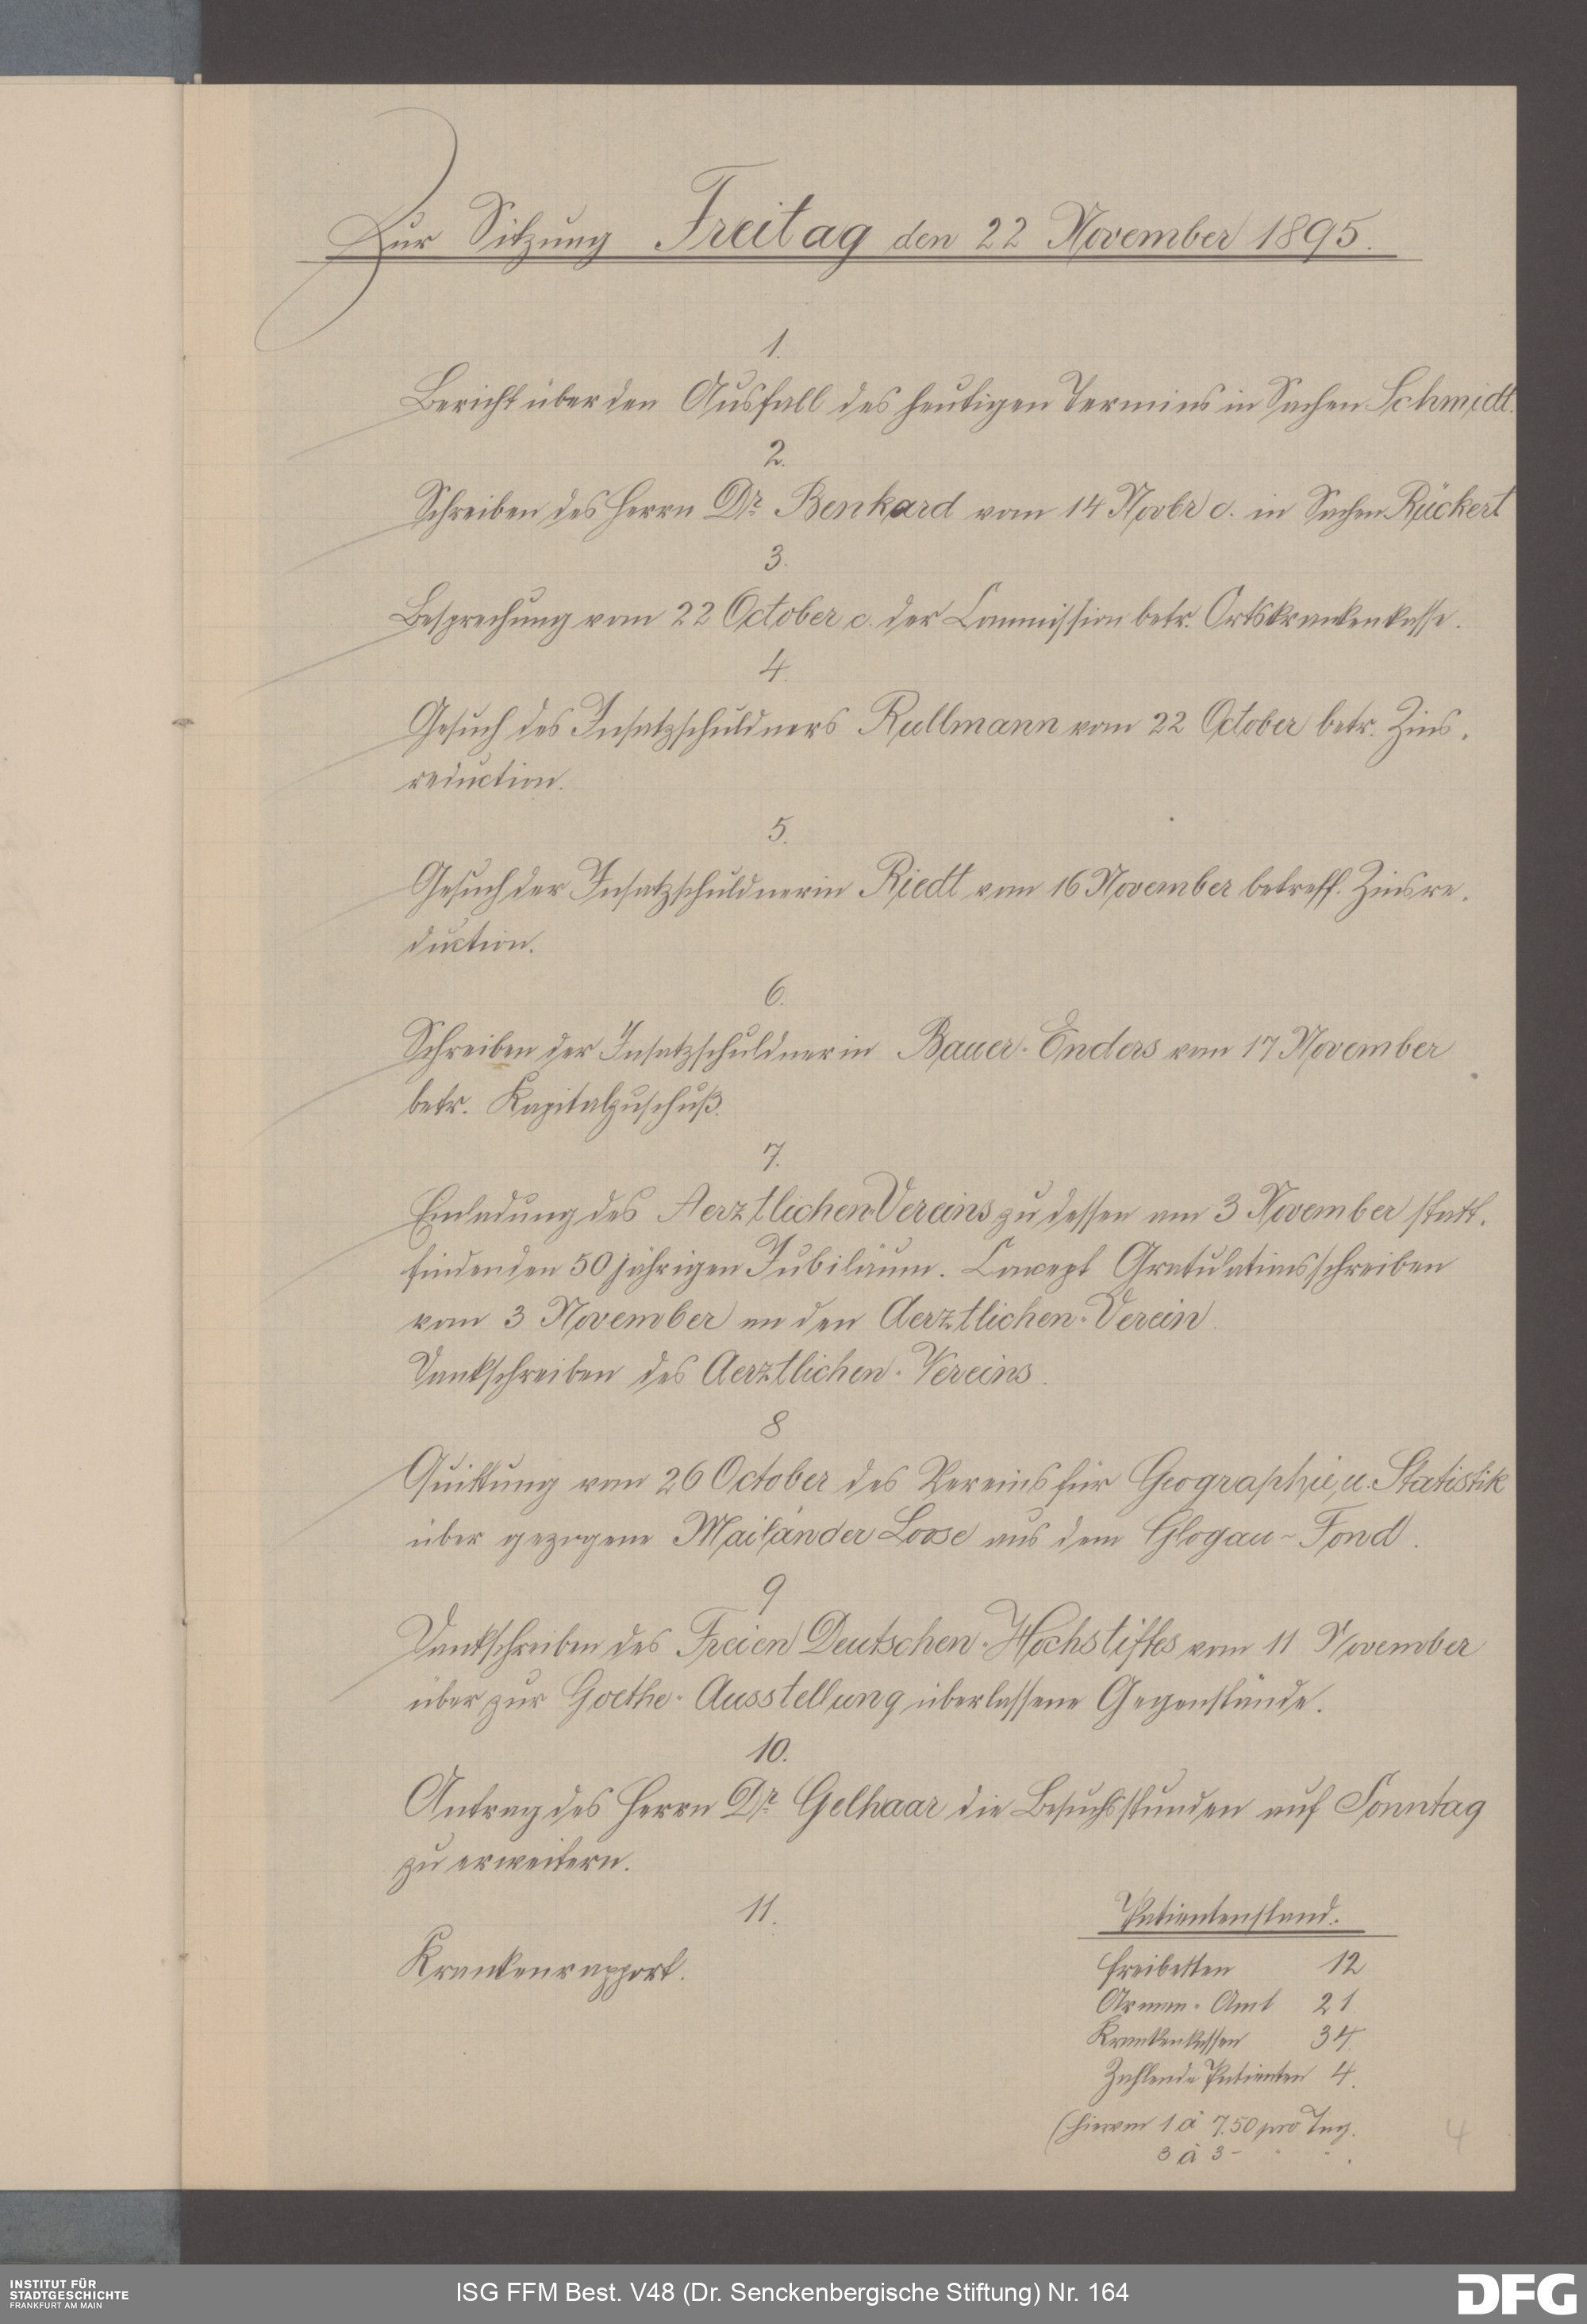 Zur Sitzung Freitag den 22 November 1895.
1.
Bericht über den Ausfall des heutigen Termins in Sachen Schmidt.
2.
Schreiben des Herrn Dr. Benkard vom 14 Novbr c. in Sachen Rückert
3.
Besprechung vom 22 October c. der Commission betr. Ortskrankenkasse.
4.
Gesuch des Insatzschuldners Rullmann vom 22 October betr. Zins-
reduction.
5.
Gesuch der Insatzschuldnerin Riedt vom 16 November betreff. Zinsre-
duction.
6.
Schreiben der Insatzschuldnerin Bauer-Enders vom 17 November
betr. Kapitalzuschuß.
7.
Einladung des Aerztlichen Vereins zu dessen am 3 November statt-
findenden 50 jährigen Jubiläum. Concept Gratulationsschreiben
vom 3 November an den Aerztlichen-Verein.
Dankschreiben des Aerztlichen-Vereins.
8
Quittung vom 26 October des Vereins für Geographie u. Statistik
über gezogene Mailänder Loose aus dem Glogau-Fond.
9
Dankschreiben des Freien Deutschen-Hochstiftes vom 11 November
über zur Goethe-Ausstellung überlassene Gegenstände.
10.
Antrag des Herrn Dr. Gelhaar die Besuchsstunden auf Sonntag
zu erweitern.
11.
Krankenrapport.
Patientenstand.
Freibetten 12
Armen-Amt 21
Krankenkassen 34.
Zahlende Patienten 4.
(hiervon 1 à 7.50 pro Tag.
3 à 3 - " " .
4
INSTITUT FÜR
STADTGESCHICHTE
FRANKFURT AM MAIN
ISG FFM Best. V48 (Dr. Senckenbergische Stiftung) Nr. 164
DFG